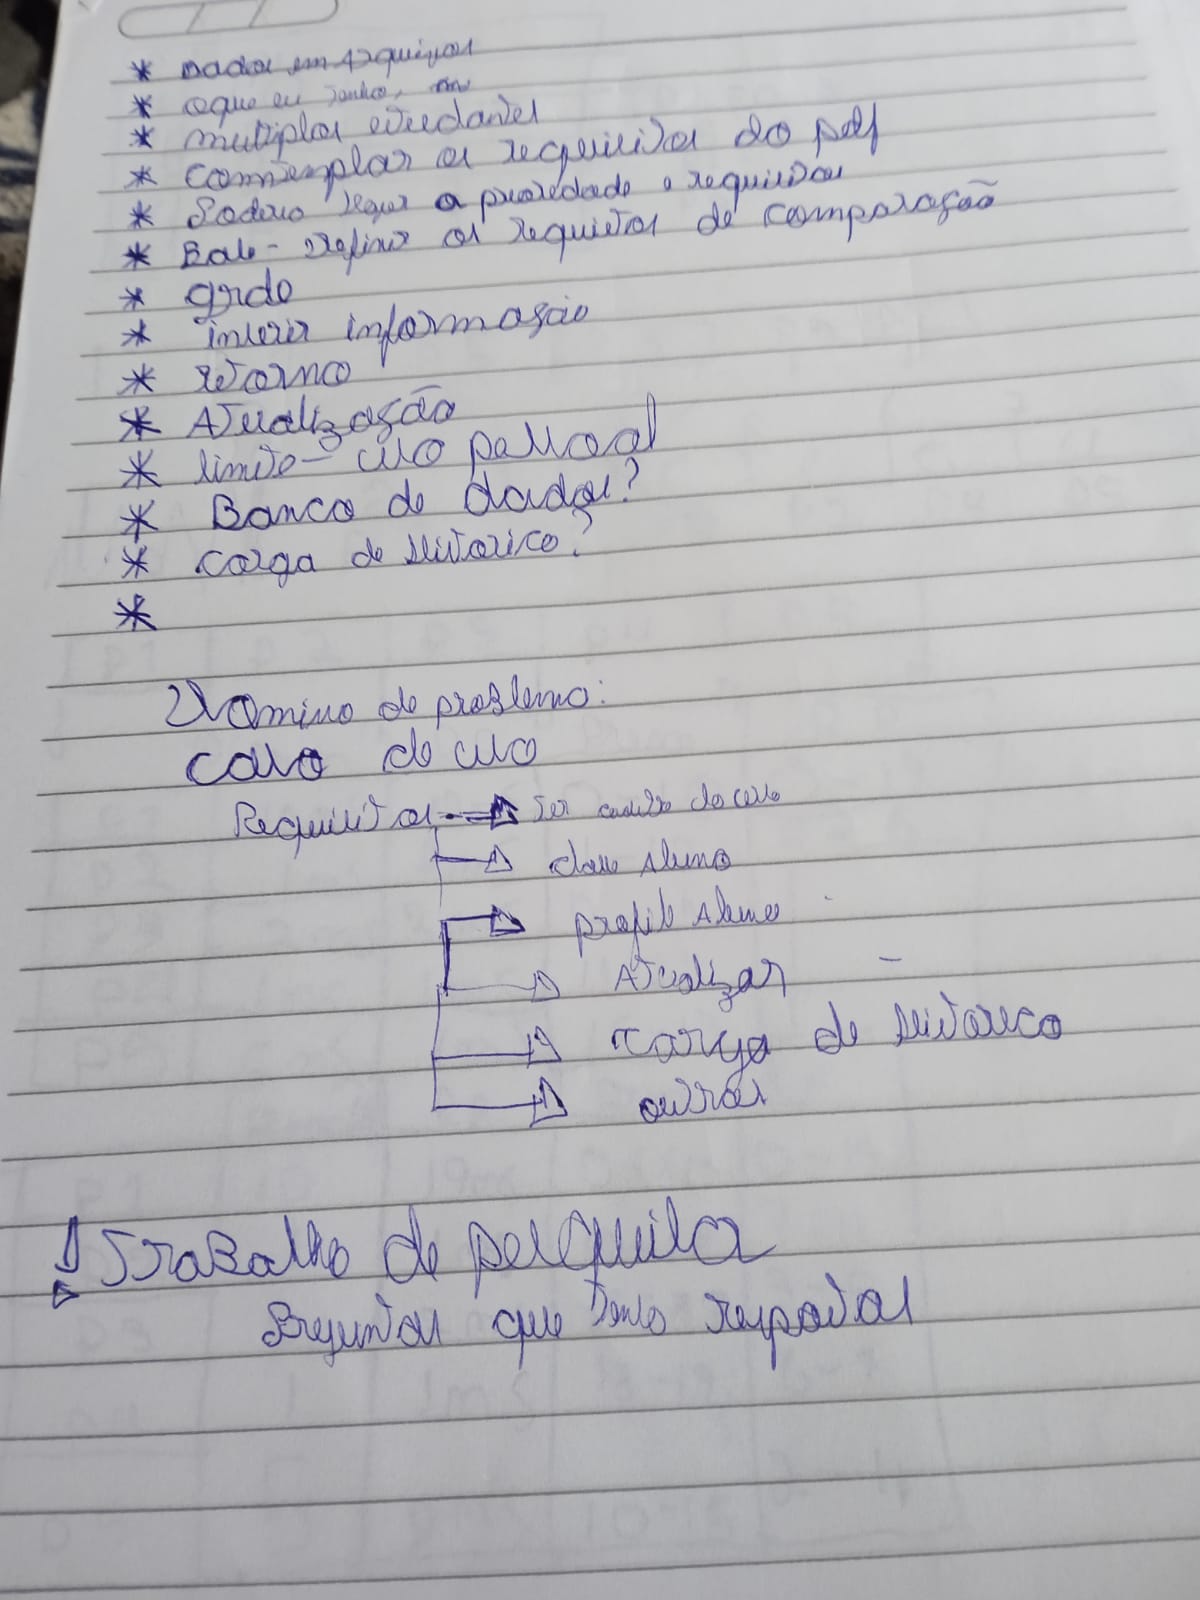 * Dados em Arquivos
* o que eu tenho,
* multiplos estudantes
* Comtemplar os requisitos do pdf
* Poderá ser a
 requisitos
* Base - Definir os requistos de comparação
* grde
* inserir informação
* retorno
* Atualização
* limite - uso pessoal
* Banco de dados?
* carga de Historico?
*
Domino de problema:
caso de uso
Requisitos Ter do
classe Aluno
profile Aluno
Atualizar -
carga de Historico
outros
! Trabalho de pesquisa
Perguntas que tenho respostas